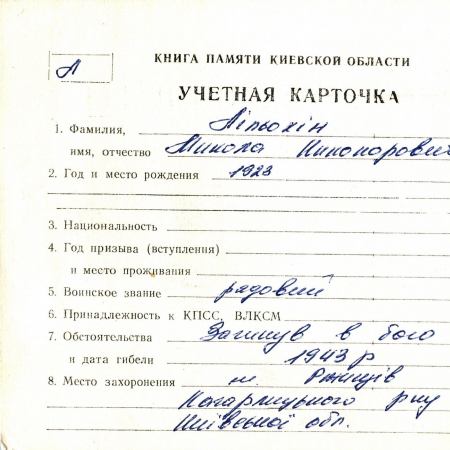 Л
КНИГА ПАМЯТИ КИЕВСКОЙ ОБЛАСТИ
УЧЕТНАЯ КАРТОЧКА
1. Фамилия, Лільохін
имя, отчество Микола Никонорович
2. Год и место рождения 1923
3. Национальность
4. Год призыва (вступления)
и место проживания
5. Воинское звание рядовий
6. Принадлежность к КПСС, ВЛКСМ
7. Обстоятельства Загинув в бою
и дата гибели 1943 р
8. Место захоронения Ржищів
Кагарлицького р-ну
Київської обл.